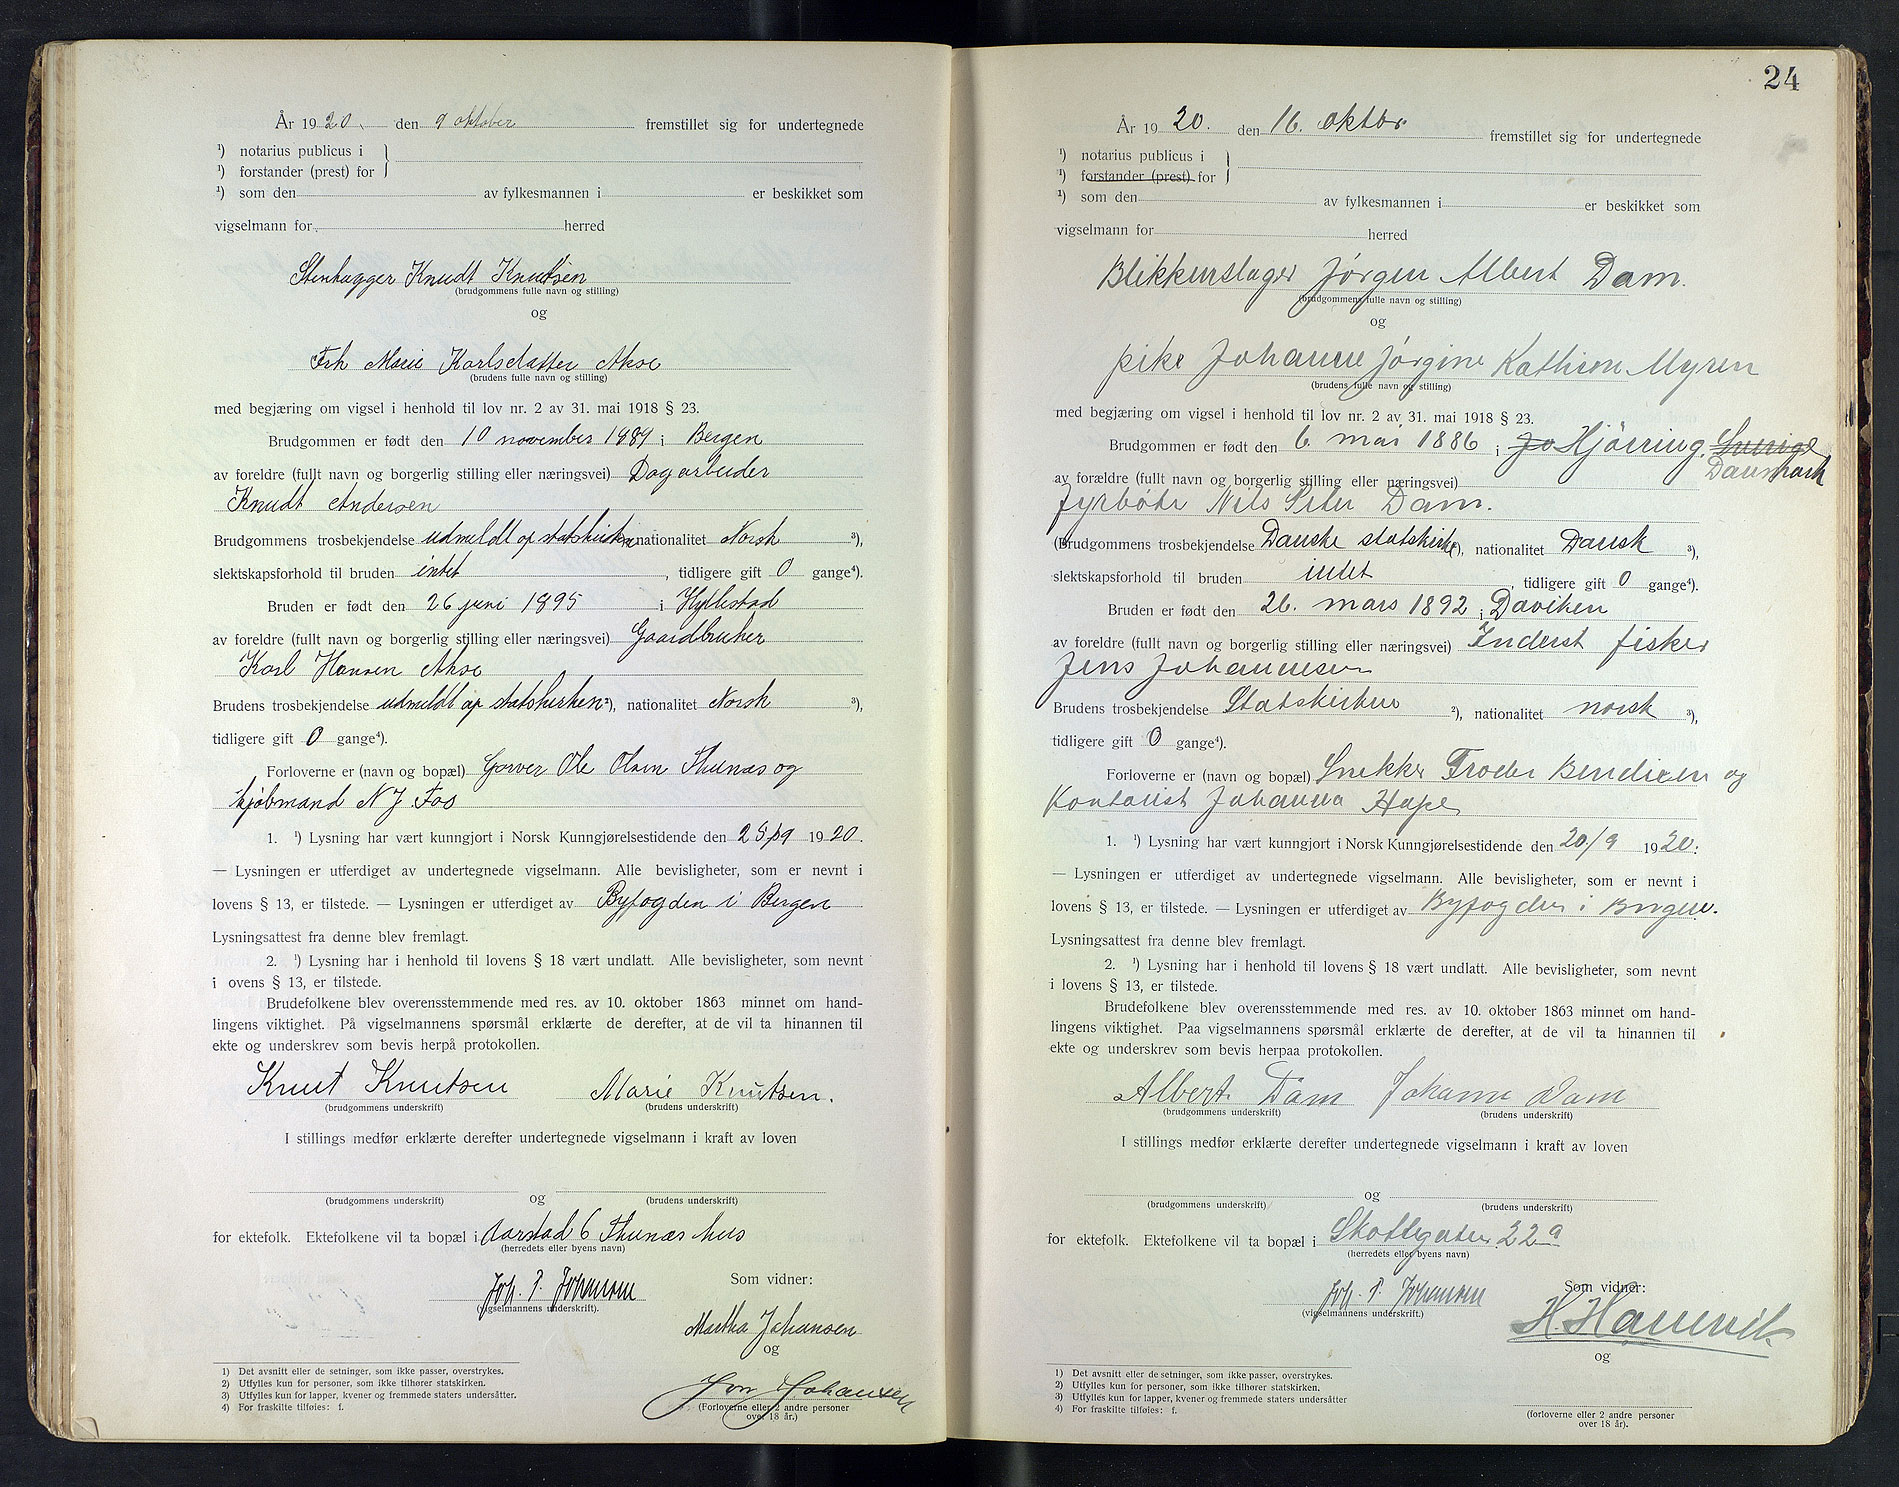 År 1920. den 9 oktober fremstillet sig for undertegnede
¹) notarius publicus i
¹) forstander (prest) for
¹) som den av fylkesmannen i er beskikket som
vigselmann for herred
Stenhugger Knudt Knutsen
(brudgommens fulle navn og stilling)
og
Frk Marie Karlsdatter Akse
(brudens fulle navn og stilling)
med begjæring om vigsel i henhold til lov nr. 2 av 31. mai 1918 § 23.
Brudgommen er født den 10 november 1889 i Bergen
av foreldre (fullt navn og borgerlig stilling eller næringsvei) Dagarbeider
Knudt Andersen
Brudgommens trosbekjendelse udmeldt af statskirken nationalitet Norsk ³),
slektskapsforhold til bruden intet, tidligere gift 0 gange⁴).
Bruden er født den 26 juni 1895 i Hyllestad
av foreldre (fullt navn og borgerlig stilling eller næringsvei) Gaardbruker
Karl Hansen Akse
Brudens trosbekjendelse udmeldt af statskirken ²), nationalitet Norsk ³),
tidligere gift 0 gange⁴).
Forloverne er (navn og bopæl) Garver Ole Olsen Thunæs og
kjøbmand N J Fos
1. ¹) Lysning har vært kunngjort i Norsk Kunngjørelsestidende den 25/9 1920.
— Lysningen er utferdiget av undertegnede vigselmann. Alle bevisligheter, som er nevnt i
lovens § 13, er tilstede. — Lysningen er utferdiget av Byfogden i Bergen
Lysningsattest fra denne blev fremlagt.
2. ¹) Lysning har i henhold til lovens § 18 vært undlatt. Alle bevisligheter, som nevnt
i ovens § 13, er tilstede.
Brudefolkene blev overensstemmende med res. av 10. oktober 1863 minnet om hand-
lingens viktighet. På vigselmannens spørsmål erklærte de derefter, at de vil ta hinannen til
ekte og underskrev som bevis herpå protokollen.
Knut Knutsen Marie Knutsen.
(brudgommens underskrift) (brudens underskrift)
I stillings medfør erklærte derefter undertegnede vigselmann i kraft av loven
og
(brudgommens underskrift) (brudens underskrift)
for ektefolk. Ektefolkene vil ta bopæl i Aarstad 6 Thunæs hus
(herredets eller byens navn)
Joh. P. Johansen Som vidner:
(vigselmannens underskrift).
Martha Johansen
og
Jon Johansen
(Forloverne eller 2 andre personer
over 18 år.)
1) Det avsnitt eller de setninger, som ikke passer, overstrykes.
2) Utfylles kun for personer, som ikke tilhører statskirken.
3) Utfylles kun for lapper, kvener og fremmede staters undersåtter.
4) For fraskilte tilføies: f.
24
År 1920. den 16. oktbr. fremstillet sig for undertegnede
¹) notarius publicus i
¹) forstander (prest) for
¹) som den av fylkesmannen i er beskikket som
vigselmann for herred
Blikkenslager Jørgen Albert Dam.
(brudgommens fulle navn og stilling)
og
pike Johanne Jørgine Kathinn Myren
(brudens fulle navn og stilling)
med begjæring om vigsel i henhold til lov nr. 2 av 31. mai 1918 § 23.
Brudgommen er født den 6. mai 1886 i Jo Hjörring, Sverige
Danmark
av forældre (fullt navn og borgerlig stilling eller næringsvei)
Fyrbøter Nils Peter Dam.
(Brudgommens trosbekjendelse Danske statskirke), nationalitet Dansk ³),
slektskapsforhold til bruden intet, tidligere gift 0 gange⁴).
Bruden er født den 26. mars 1892 i Daviken
av foreldre (fullt navn og borgerlig stilling eller næringsvei) Inderst fisker
Jens Johannesen
Brudens trosbekjendelse Statskirken ²), nationalitet norsk ³),
tidligere gift 0 gange⁴).
Forloverne er (navn og bopæl) Snekker Frode Bendixen og
Kontorist Johanna Hope
1. ¹) Lysning har vært kunngjort i Norsk Kunngjørelsestidende den 20/9 1920.
— Lysningen er utferdiget av undertegnede vigselmann. Alle bevisligheter, som er nevnt i
lovens § 13, er tilstede. — Lysningen er utferdiget av Byfogden i Bergen.
Lysningsattest fra denne blev fremlagt.
2. ¹) Lysning har i henhold til lovens § 18 vært undlatt. Alle bevisligheter, som nevnt
i lovens § 13, er tilstede.
Brudefolkene blev overensstemmende med res. av 10. oktober 1863 minnet om hand-
lingens viktighet. Paa vigselmannens spørsmål erklærte de derefter, at de vil ta hinannen til
ekte og underskrev som bevis herpaa protokollen.
Albert Dam Johanne Dam
(brudgommens underskrift) (brudens underskrift)
I stillings medfør erklærte derefter undertegnede vigselmann i kraft av loven
og
(brudgommens underskrift) (brudens underskrift)
for ektefolk. Ektefolkene vil ta bopæl i Skottegaten 22a
(herredets eller byens navn)
Joh. P. Johansen Som vidner:
(vigselmannens underskrift.)
H. Hamrvik
og
(forloverne eller 2 andre personer
over 18 år).
1) Det avsnitt eller de setninger, som ikke passer, overstrykes.
2) Utfylles kun for personer, som ikke tilhører statskirken.
3) Utfylles kun for lapper, kvener og fremmede staters undersåtter
4) For fraskilte tilføies: f.